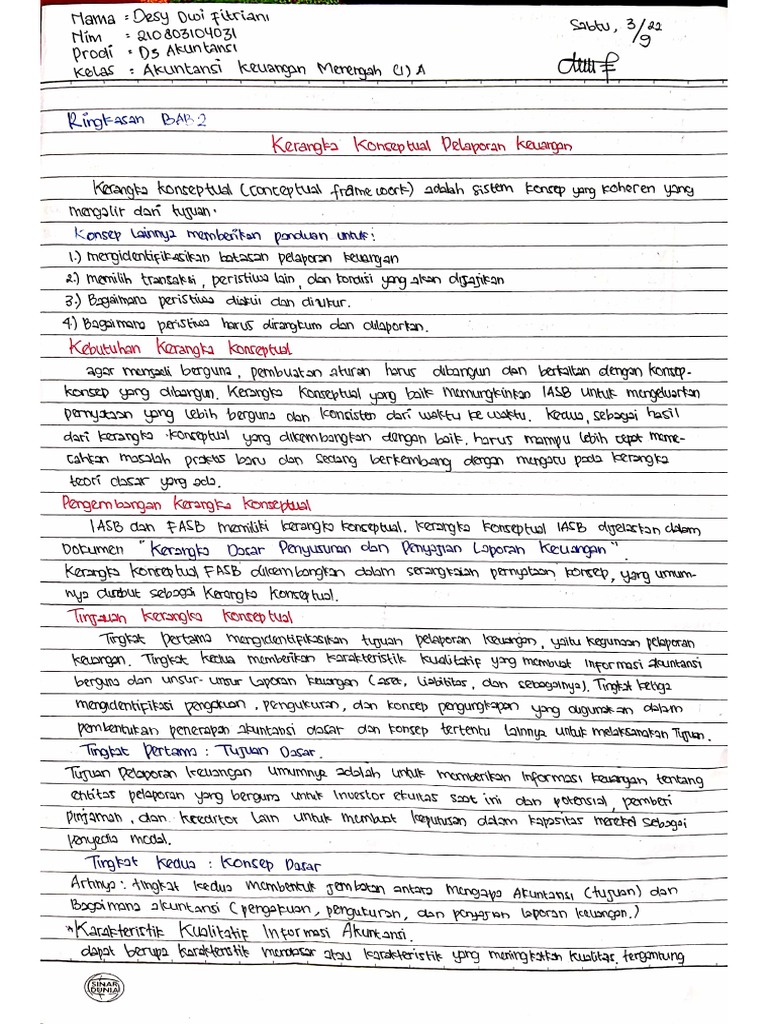 Nama : Desy Dwi Fitriani
Sabtu, 3/9 22
Nim : 210803104031
Prodi : D3 Akuntansi
Kelas : Akuntansi Keuangan Menengah (1) A
Ringkasan BAB 2
Kerangka Konseptual Pelaporan Keuangan
Kerangka konseptual (conceptual frame work) adalah sistem konsep yang koheren yang
mengalir dari tujuan.
Konsep lainnya memberikan panduan untuk :
1.) mengidentifikasikan batasan pelaporan keuangan
2.) memilih transaksi, peristiwa lain, dan kondisi yang akan disajikan
3.) Bagaimana peristiwa diakui dan diukur.
4) Bagaimana peristiwa harus dirangkum dan dilaporkan.
Kebutuhan Kerangka Konseptual
agar menjadi berguna, pembuatan aturan harus dibangun dan berkaitan dengan konsep-
konsep yang dibangun. Kerangka Konseptual yang baik memungkinkan IASB untuk mengeluarkan
pernyataan yang lebih berguna dan konsisten dari waktu ke waktu. Kedua, sebagai hasil
dari kerangka konseptual yang dikembangkan dengan baik. harus mampu lebih cepat meme-
cahkan masalah praktis baru dan sedang berkembang dengan mengacu pada kerangka
teori dasar yang ada.
Pengembangan Kerangka Konseptual
IASB dan FASB memiliki kerangka konseptual. Kerangka Konseptual IASB dijelaskan dalam
Dokumen "Kerangka Dasar Penyusunan dan Penyajian Laporan Keuangan".
Kerangka Konseptual FASB dikembangkan dalam serangkaian pernyataan konsep, yang umum-
nya disebut sebagai Kerangka Konseptual.
Tinjauan Kerangka Konseptual
Tingkat pertama mengidentifikasikan tujuan pelaporan keuangan, yaitu kegunaan pelaporan
keuangan. Tingkat kedua memberikan karakteristik kualitatif yang membuat informasi akuntansi
berguna dan unsur-unsur Laporan keuangan (aset, liabilitas, dan sebagainya). Tingkat ketiga
mengidentifikasi pengakuan, pengukuran, dan konsep pengungkapan yang digunakan dalam
pembentukan penerapan akuntansi dasar dan konsep tertentu lainnya untuk melaksanakan Tujuan.
Tingkat Pertama : Tujuan Dasar.
Tujuan Pelaporan keuangan umumnya adalah untuk memberikan informasi keuangan tentang
entitas pelaporan yang berguna untuk investor ekuitas saat ini dan potensial, pemberi
pinjaman, dan kreditor lain untuk membuat keputusan dalam kapasitas mereka sebagai
penyedia modal.
Tingkat Kedua : Konsep Dasar
Artinya : tingkat kedua membentuk jembatan antara mengapa akuntansi (tujuan) dan
Bagaimana akuntansi (pengakuan, pengukuran, dan penyajian laporan keuangan.)
*Karakteristik Kualitatif Informasi Akuntansi.
dapat berupa karakteristik mendasar atau karakteristik yang meningkatkan kualitas, tergantung
SINAR
DUNIA